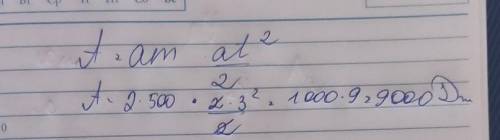 A = am at²/2
A = 2·500 · 2·3²/2 = 1000·9 = 9000 Dm